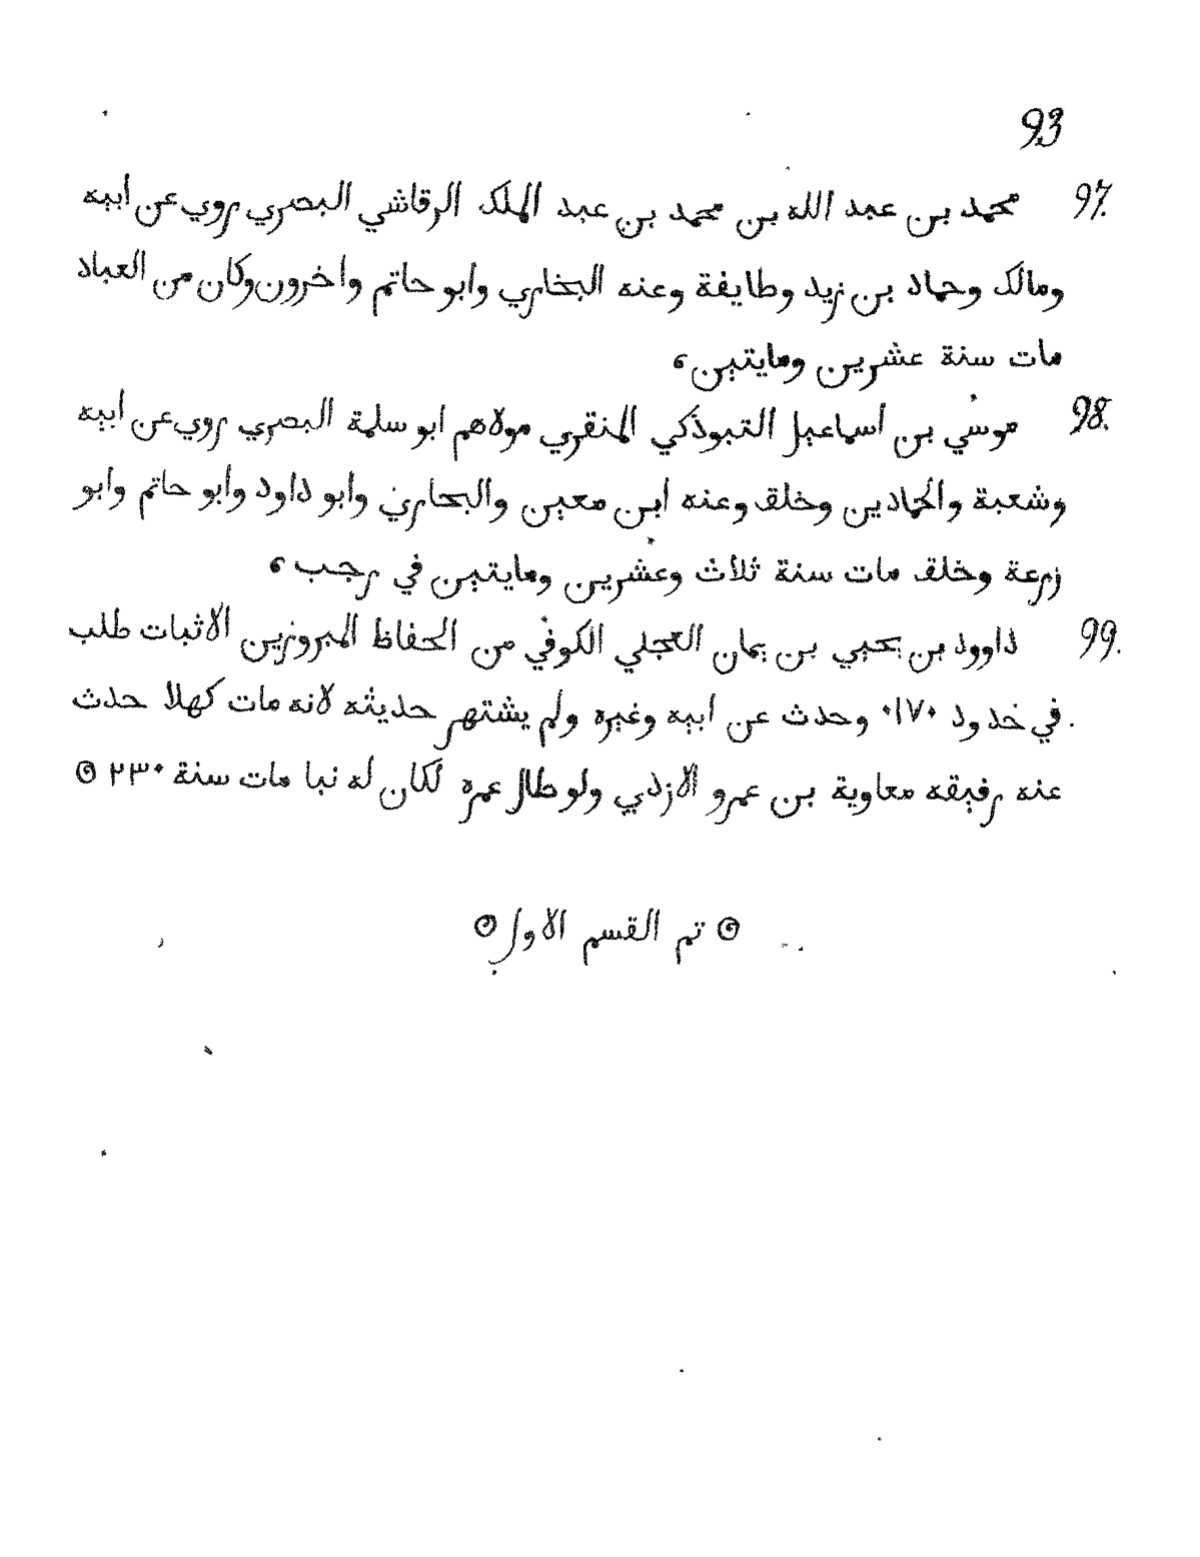 93
97. محمد بن عبد الله بن محمد بن عبد الملك الرقاشي البصري روي عن ابيه
ومالك وحماد بن زيد وطايفة وعنه البخاري وابو حاتم واخرون وكان من العباد
مات سنة عشرين ومايتين،
98. موسي بن اسماعيل التبوذكي المنقري مولاهم ابو سلمة البصري روي عن ابيه
وشعبة والحمادين وخلق وعنه ابن معين والبحاري وابو داود وابو حاتم وابو
زرعة وخلق مات سنة ثلاث وعشرين ومايتين في رجب،
99. داوود بن يحيي بن يمان العجلي الكوفي من الحفاظ المبروزين الاثبات طلب
في خدود ١٧٠ وحدث عن ابيه وغيره ولم يشتهر حديثه لانه مات كهلا حدث
عنه رفيقه معاوية بن عمرو الازدي ولو طال عمره لكان له نبا مات سنة ٢٣٠ ۞
۞ تم القسم الاول ۞